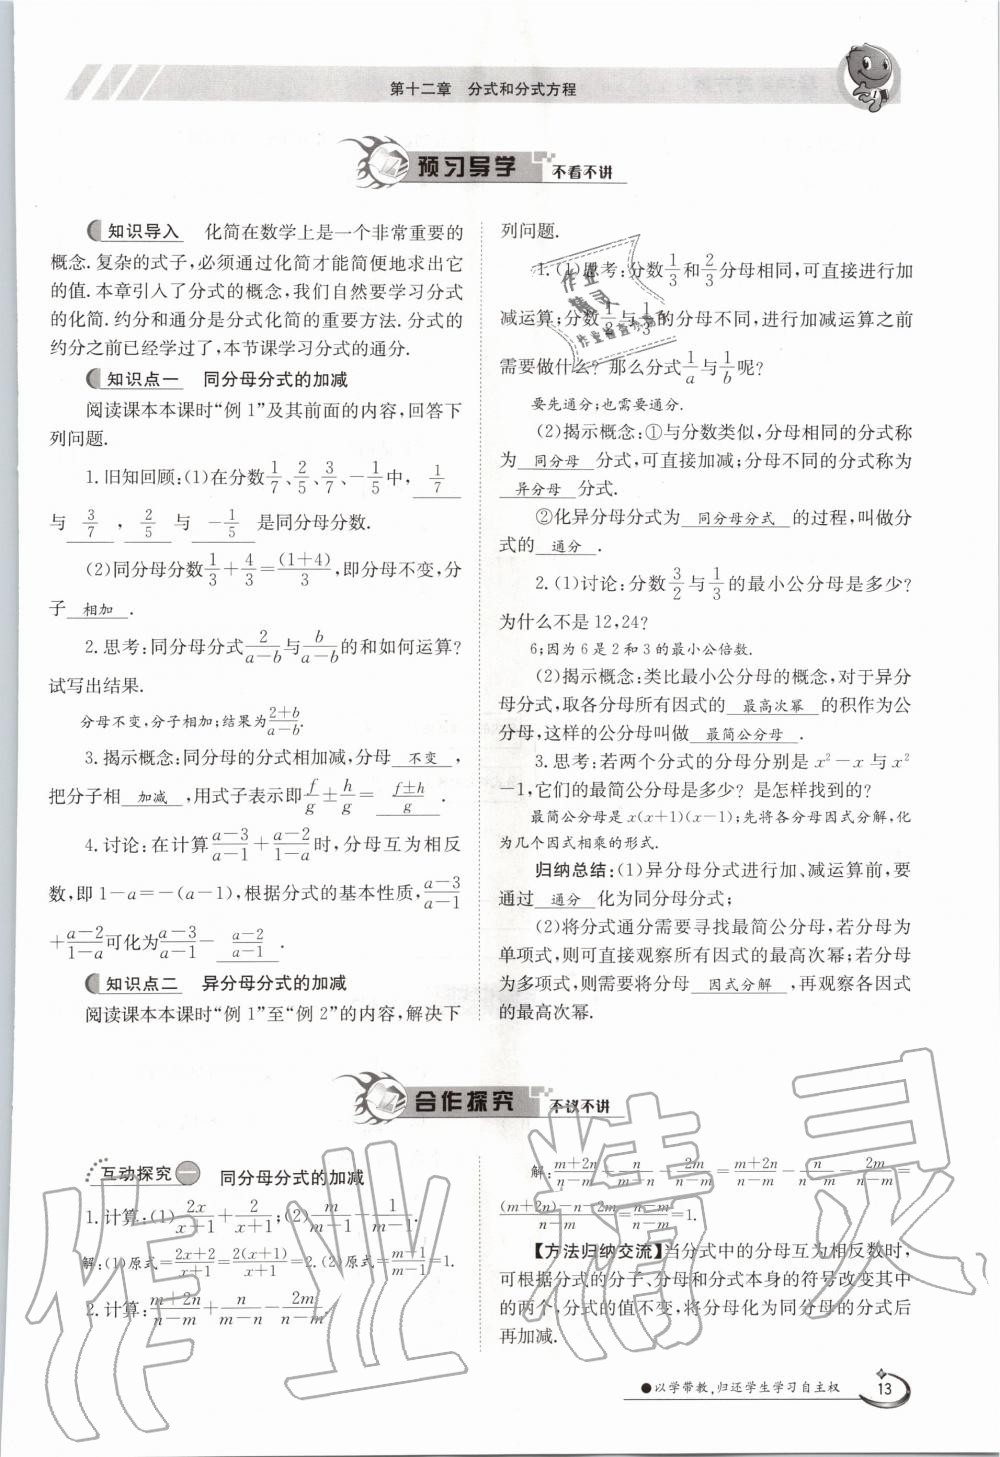 第十二章 分式和分式方程
预习导学 不看不讲
知识导入 化简在数学上是一个非常重要的
概念.复杂的式子,必须通过化简才能简便地求出它
的值.本章引入了分式的概念,我们自然要学习分式
的化简.约分和通分是分式化简的重要方法.分式的
约分之前已经学过了,本节课学习分式的通分.
知识点一 同分母分式的加减
阅读课本本课时“例1”及其前面的内容,回答下
列问题.
1.旧知回顾:(1)在分数1/7、2/5、3/7、-1/5中, 1/7
与 3/7 , 2/5 与 -1/5 是同分母分数.
(2)同分母分数1/3+4/3=(1+4)/3,即分母不变,分
子 相加 .
2.思考:同分母分式2/(a-b)与b/(a-b)的和如何运算?
试写出结果.
分母不变,分子相加;结果为(2+b)/(a-b).
3.揭示概念:同分母的分式相加减,分母 不变 ,
把分子相 加减 ,用式子表示即f/g±h/g= (f±h)/g .
4.讨论:在计算(a-3)/(a-1)+(a-2)/(1-a)时,分母互为相反
数,即1-a=-(a-1),根据分式的基本性质,(a-3)/(a-1)
+(a-2)/(1-a)可化为(a-3)/(a-1)- (a-2)/(a-1) .
知识点二 异分母分式的加减
阅读课本本课时“例1”至“例2”的内容,解决下
列问题.
1.(1)思考:分数1/3和2/3分母相同,可直接进行加
减运算;分数1/2与1/3的分母不同,进行加减运算之前
需要做什么?那么分式1/a与1/b呢?
要先通分;也需要通分.
(2)揭示概念:①与分数类似,分母相同的分式称
为 同分母 分式,可直接加减;分母不同的分式称为
异分母 分式.
②化异分母分式为 同分母分式 的过程,叫做分
式的 通分 .
2.(1)讨论:分数3/2与1/3的最小公分母是多少?
为什么不是12,24?
6;因为6是2和3的最小公倍数.
(2)揭示概念:类比最小公分母的概念,对于异分
母分式,取各分母所有因式的 最高次幂 的积作为公
分母,这样的公分母叫做 最简公分母 .
3.思考:若两个分式的分母分别是x²-x与x²
-1,它们的最简公分母是多少?是怎样找到的?
最简公分母是x(x+1)(x-1);先将各分母因式分解,化
为几个因式相乘的形式.
归纳总结:(1)异分母分式进行加、减运算前,要
通过 通分 化为同分母分式;
(2)将分式通分需要寻找最简公分母,若分母为
单项式,则可直接观察所有因式的最高次幂;若分母
为多项式,则需要将分母 因式分解 ,再观察各因式
的最高次幂.
合作探究 不议不讲
互动探究一 同分母分式的加减
1.计算:(1)2x/(x+1)+2/(x+1);(2)m/(m-1)-1/(m-1).
解:(1)原式=(2x+2)/(x+1)=2(x+1)/(x+1)=2.(2)原式=(m-1)/(m-1)=1.
2.计算:(m+2n)/(n-m)+n/(m-n)-2m/(n-m).
解:(m+2n)/(n-m)-n/(n-m)-2m/(n-m)=(m+2n)/(n-m)-n/(n-m)-2m/(n-m)=
((m+2n)-n-2m)/(n-m)=(n-m)/(n-m)=1.
【方法归纳交流】当分式中的分母互为相反数时,
可根据分式的分子、分母和分式本身的符号改变其中
的两个,分式的值不变,将分母化为同分母的分式后
再加减.
●以学带教,归还学生学习自主权 13
作业精灵